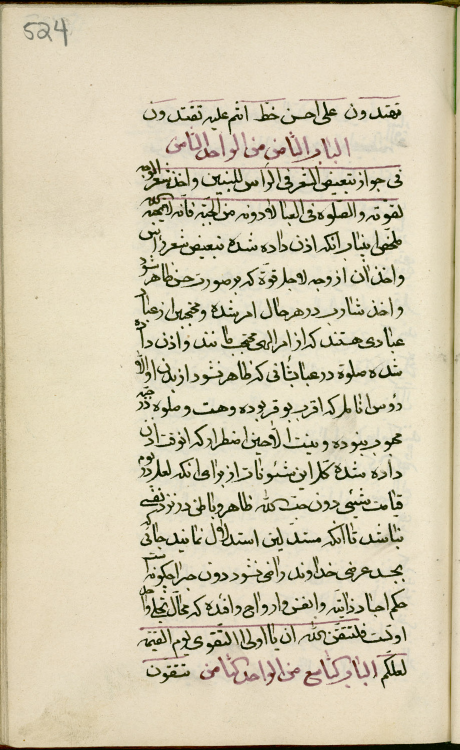 524
تقتدون علی احسن خط انتم علیه تقتدرون
الباب الثامن من الواحد الثامن
فی جواز تبعیض الشعر فی الراس للبنین و اخذ شعر الوجه
لقوته و الصلوة فی العبا لا دونه من الجبة فانه
ملخص این باب انکه اذن داده شده تبعیض شعر راس
و اخذ ان از وجه لاجل قوة که بر صورت حسن ظاهر شود
و اخذ شارب در هر حال امر شده و محتجبین از عباد
عبادی هستند که از امر الهی محتجب مانند و اذن داده
شده صلوة در عبا بشانی که ظاهر نشود از بدن اولا
رؤس انامل که اقرب بوقر بوده و هست و صلوة در جبه
محبوب نبوده و نیست الا حین اضطرار که انوقت اذن
داده شده کل این شئونات از برای انکه لعل در یوم
قیامت شیئی دون حب الله ظاهر و باطن در نزد نفسی
نباشد تا انکه مستدلین استدلال نمایند جائی که
بجسد عرضی خداوند راضی نشود دون حب را چگونه است
حکم اجساد ذاتیه و انفس و ارواح و افئده که محال تجلی واحد
اوست فلتتقن الله ان یا اولی التقوی یوم القیمة
لعلکم الباب التاسع من الواحد الثامن تتقون